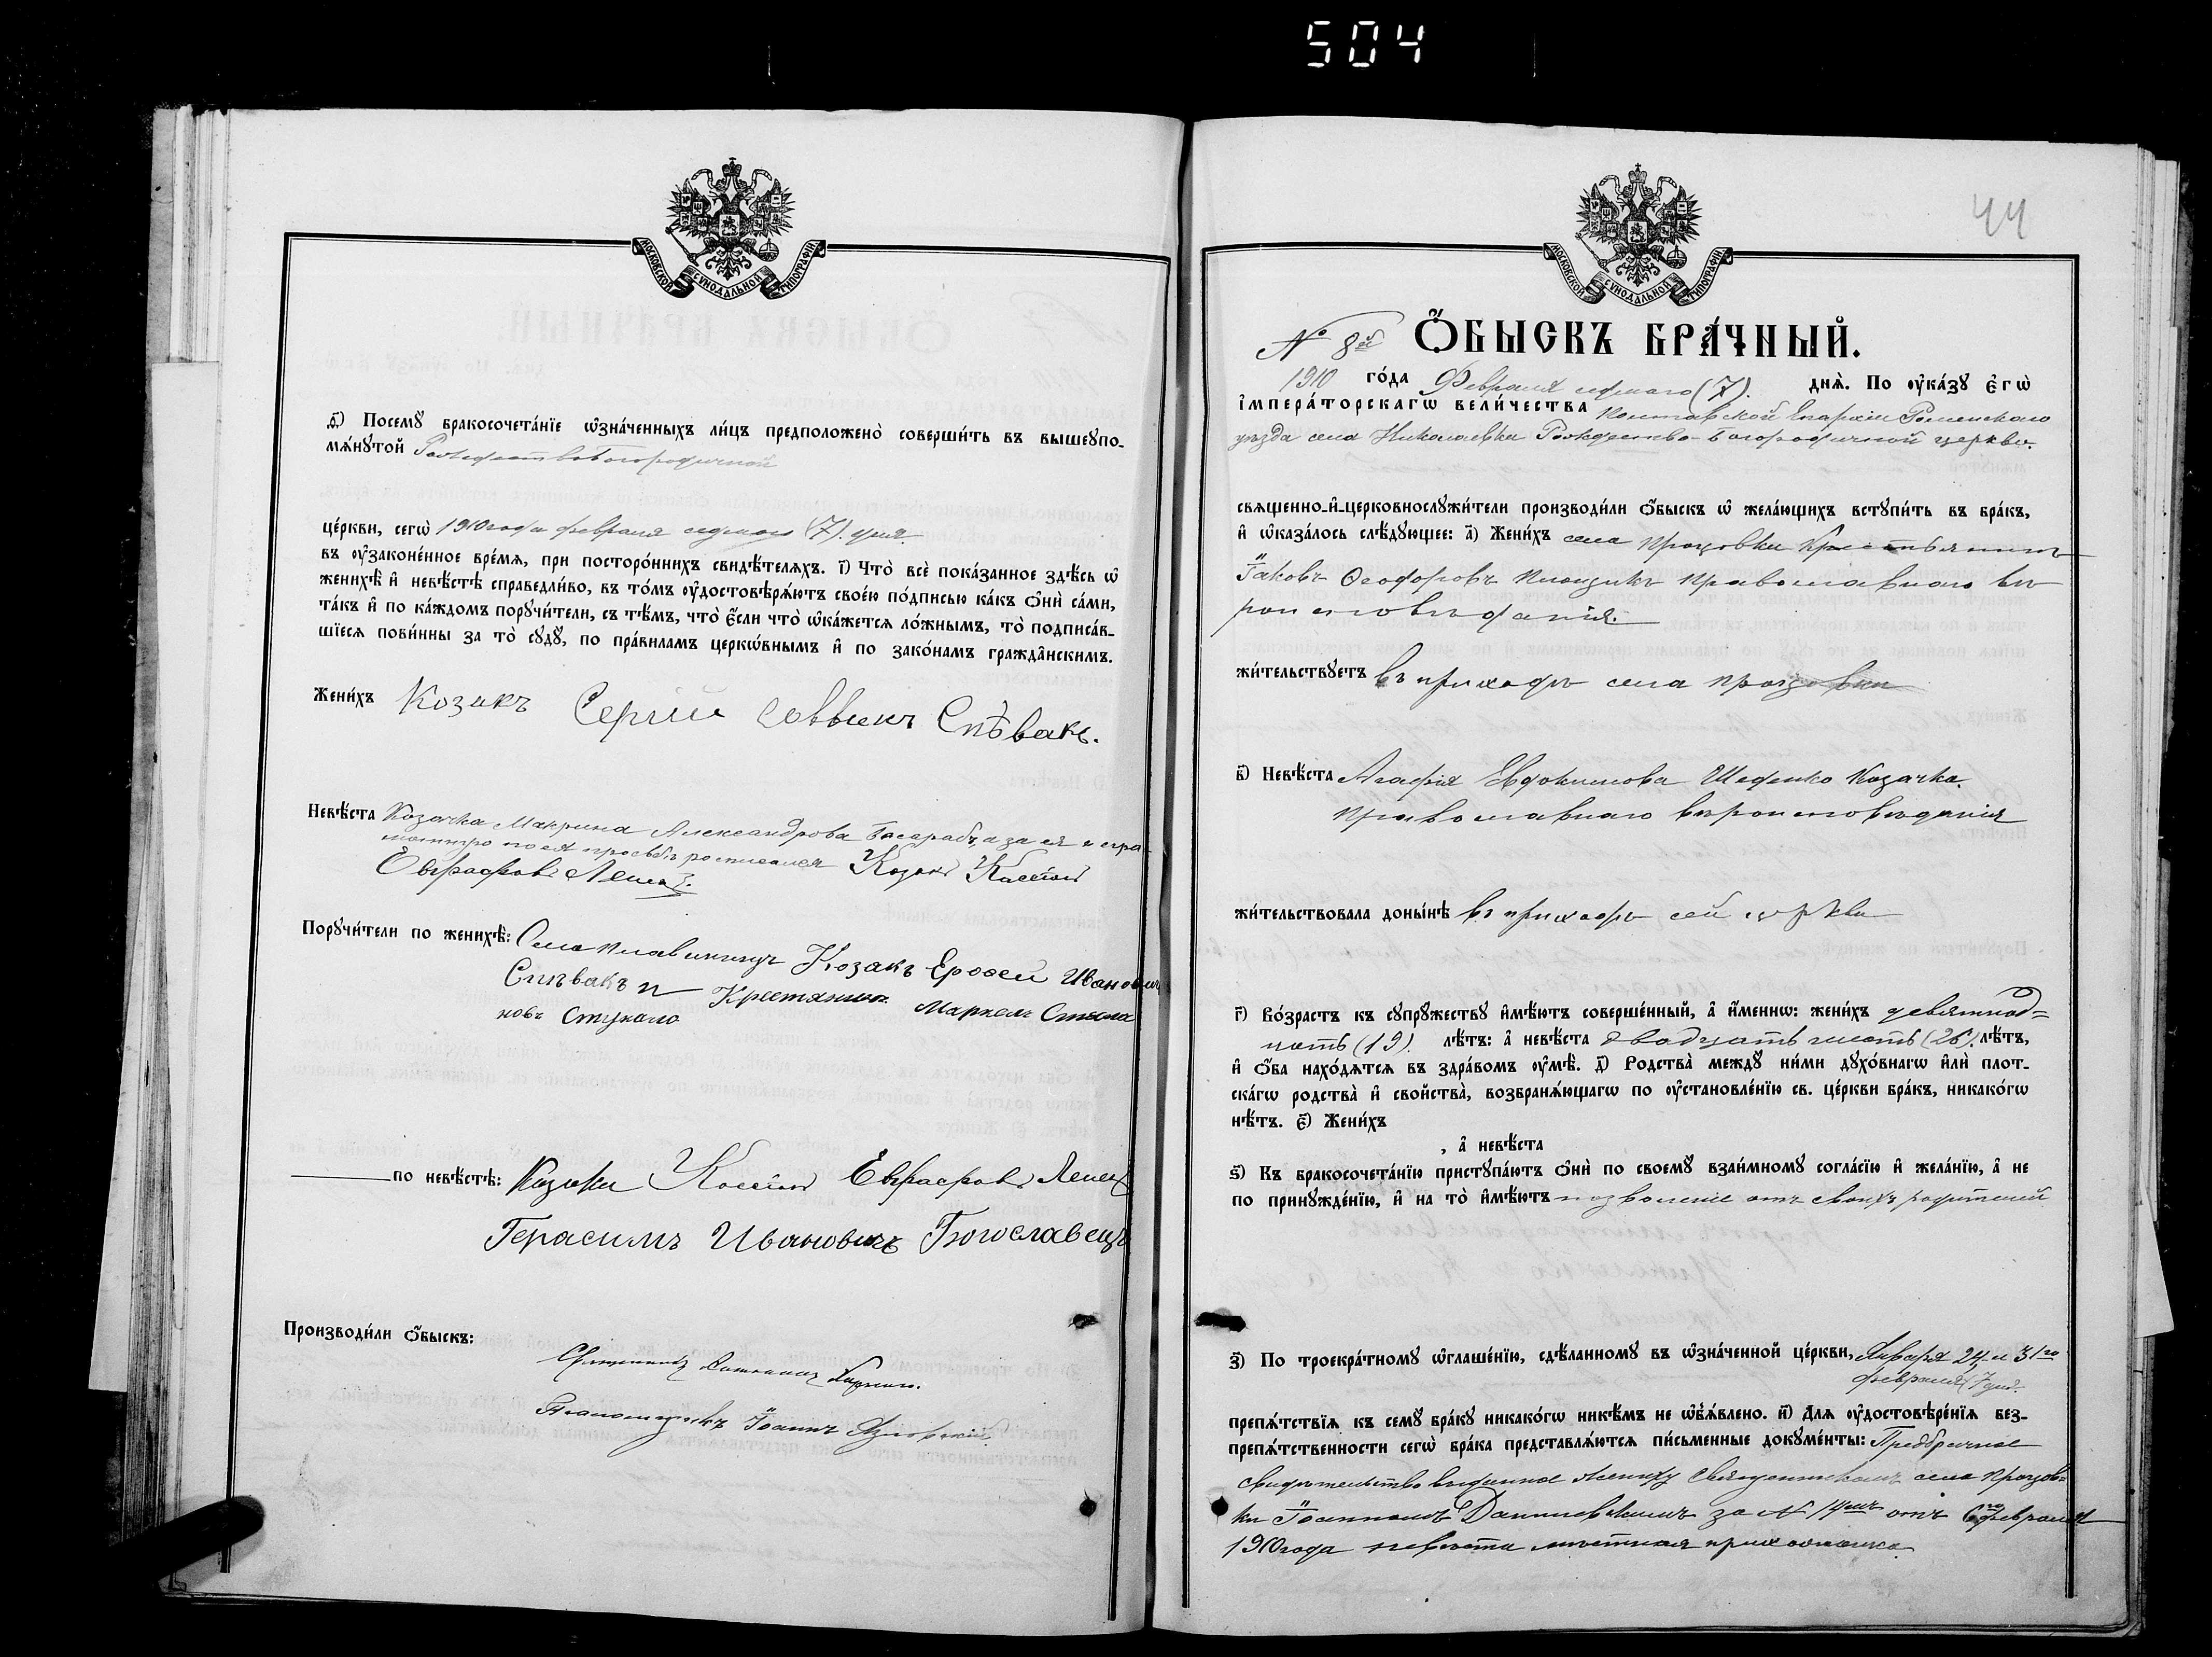 504
МОСКОВСКОЙ СѴНОДАЛЬНОЙ ТИПОГРАФІИ
д҃) Посемꙋ бракосочета́нїе ѡ҆зна́ченныхъ ли́цъ предположено̀ соверши́ть въ вышеꙋпо-
мѧ́нꙋтой Рождествобогородичной
це́ркви, сегѡ̀ 1910 года февраля седмого (7). дня.
въ ᲂу҆зако́не́нное вре́мѧ, при посторо́ннихъ свидѣ́телѧхъ. і҃) Что̀ всѐ пока́занное здѣ́сь ѡ҆
женихѣ̀ и҆ невѣ́стѣ справедли́во, въ то́мъ ᲂу҆достовѣрѧ́ютъ свое́ю по́дписью ка́къ ѻ҆нѝ са́ми,
та́къ и҆ по ка́ждомъ порꙋчи́тели, съ тѣ́мъ, что̀ є҆́сли что̀ ѡ҆ка́жетсѧ ло́жнымъ, то̀ подписа́в-
шїесѧ пови́нны за то̀ сꙋдꙋ̀, по пра́виламъ церкѡ́внымъ и҆ по зако́намъ гражда̂нскимъ.
Жени́хъ Козакъ Сергій Саввинъ Спѣвакъ.
Невѣ́ста Козачка Макрина Александрова Басарабъ, а за ея негра-
мотную по ея просьбѣ росписался Козакъ Кассіанъ
Евграфовъ
Порꙋчи́тели по женихѣ̀: Села Козакъ Ерофей Ивановичъ
Спѣвакъ и Крестянинъ Маркелъ
новъ Стукало
по невѣ́стѣ: Козаки Кассіанъ Евграфовъ
Герасимъ Ивановичъ Богославецъ
Производи́ли ѻ҆́быскъ:
Священникъ
Псаломщикъ Іоаннъ
44
МОСКОВСКОЙ СѴНОДАЛЬНОЙ ТИПОГРАФІИ
№ 8й Ѻ҆́БЫСКЪ БРА́ЧНЫЙ.
1910 го́да Февраля седмого (7). днѧ̀. По ᲂу҆ка́зꙋ є҆гѡ̀
і҆мпера́торскагѡ вели́чества Полтавской Епархіи Роменскаго
уѣзда села Николаевки Рождество-Богородичной церкви.
свѧщенно-и҆-церковнослꙋжи́тели производи́ли ѻ҆́быскъ ѡ҆ жела́ющихъ встꙋпи́ть въ бра́къ,
и҆ ѡ҆каза́лось слѣ́дꙋющее: а҃) Жени́хъ села Процовки Крестьянинъ
Іаковъ Ѳеодоровъ Православнаго вѣ-
роисповѣданія.
жи́тельствꙋетъ въ приходѣ села Процовки
в҃) Невѣ́ста Агафія Евдокимова Шеденко Козачка.
Православнаго вѣроисповѣданія
жи́тельствовала доны́нѣ въ приходѣ сей церкви
г҃) Во́зрастъ къ сꙋпрꙋ́жествꙋ и҆мѣ́ютъ соверше́нный, а҆ и҆́меннѡ: жени́хъ девятнад-
цать (19). лѣ́тъ: а҆ невѣ́ста двадцать шесть (26). лѣ́тъ,
и҆ ѻ҆́ба нахо́дѧтсѧ въ здра́вомъ ᲂу҆мѣ̀. д҃) Родства̀ междꙋ̀ ни́ми дꙋхо́внагѡ и҆лѝ плот-
ска́гѡ родства̀ и҆ свойства̀, возбранѧ́ющагѡ по ᲂу҆становле́нїю св. це́ркви бра́къ, никако́гѡ
нѣ́тъ. є҃) Жени́хъ
, а҆ невѣ́ста
ѕ҃) Къ бракосочета́нїю пристꙋпа́ютъ ѻ҆нѝ по своемꙋ̀ взаи́мномꙋ согла́сїю и҆ жела́нїю, а҆ не
по принꙋжде́нїю, и҆ на то̀ и҆мѣ́ютъ позволеніе отъ своихъ родителей
з҃) По троекра́тномꙋ ѡ҆глаше́нїю, сдѣ́ланномꙋ въ ѡ҆зна́ченной це́ркви, Января 24 и 31го
февраля 7 дня.
препѧ́тствїѧ къ семꙋ̀ бра́кꙋ никако́гѡ никѣ́мъ не ѡ҆б̾ѧ́влено. и҃) Длѧ ᲂу҆достовѣре́нїѧ без-
препѧ́тственности сегѡ̀ бра́ка представлѧ́ютсѧ пи́сьменные докꙋме́нты: Предбрачное
свидѣтельство выданное жениху Священникомъ села Процов-
ки Іоанномъ Даниловскимъ за № отъ 6го февраля
1910 года невѣста мѣстная прихожанка